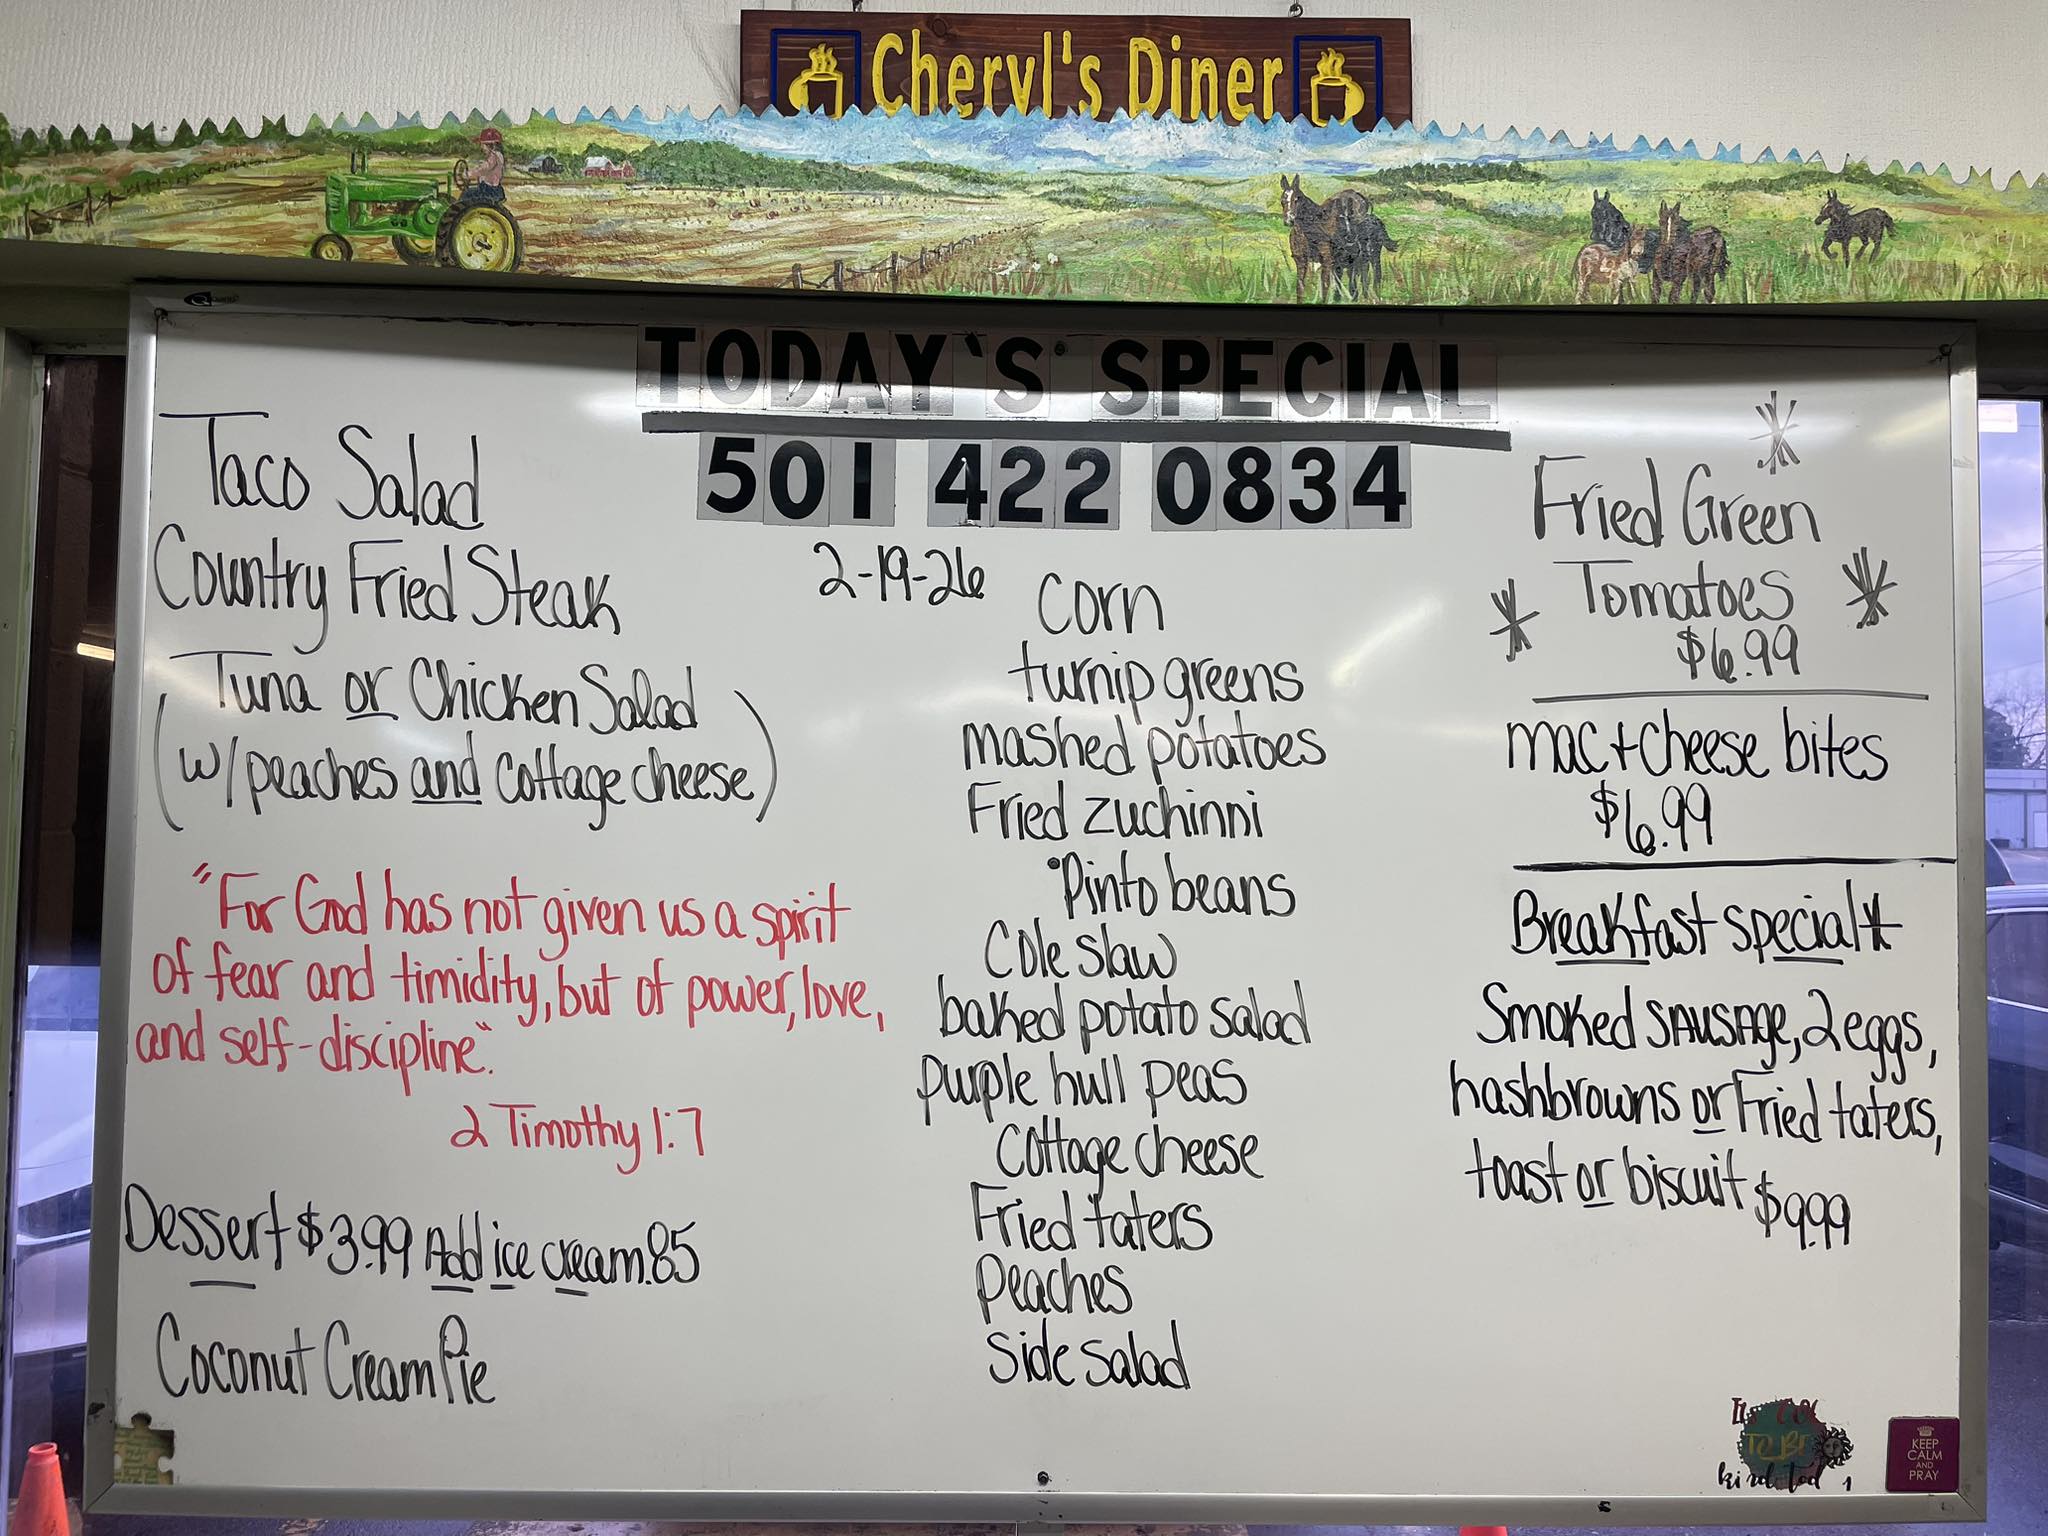 Cheryl's Diner
TODAY'S SPECIAL
501 422 0834
2-19-26
Taco Salad
Country Fried Steak
Tuna or Chicken Salad
(w/ peaches and cottage cheese)
"For God has not given us a spirit
of fear and timidity, but of power, love,
and self-discipline."
2 Timothy 1:7
Dessert $3.99 Add ice cream .85
Coconut Cream Pie
Corn
turnip greens
mashed potatoes
Fried zuchinni
Pinto beans
Cole slaw
baked potato salad
purple hull peas
Cottage cheese
Fried taters
Peaches
Side salad
Fried Green
Tomatoes
$6.99
mac + cheese bites
$6.99
Breakfast special*
Smoked sausage, 2 eggs,
hashbrowns or Fried taters,
toast or biscuit $9.99
TO BE
kind
KEEP
CALM
AND
PRAY